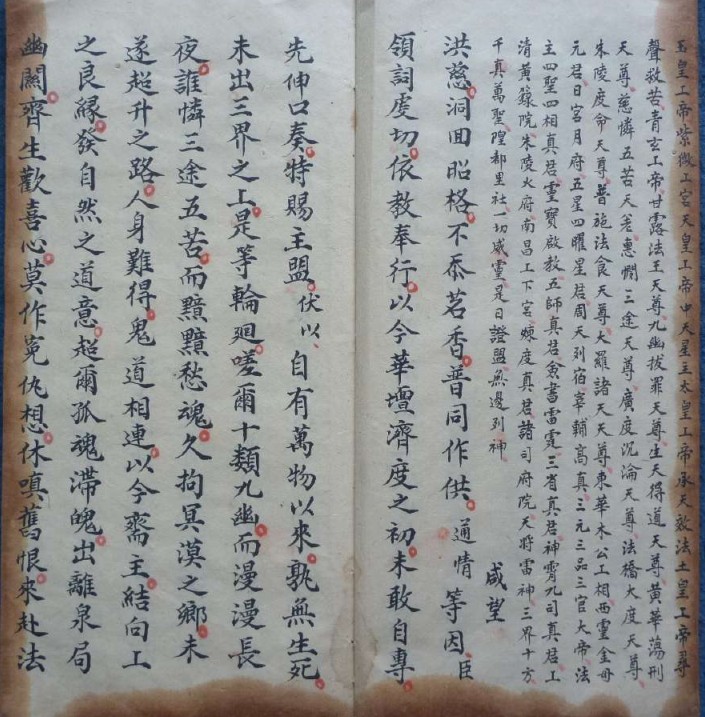 玉皇上帝紫微上宮天皇上帝中天星主太皇上帝承天效法土皇上帝尋
聲救苦青玄上帝甘露法王天尊九幽拔罪天尊生天得道天尊黃華蕩刑
天尊慈憐五苦天尊惠憫三途天尊廣度沉淪天尊法橋大度天尊
朱陵度命天尊普施法食天尊大羅諸天天尊東華木公上相西靈金母
元君日宮月府五星四曜星君周天列宿宰輔高真三元三品三官大帝法
主四聖四相真君靈寶啟教五師真君籙書雷霆三省真君神霄九司真君上
清黃籙院朱陵火府南昌上下宮煉度真君諸司府院天將雷神三界十方
千真萬聖隍都里社一切咸靈是日證盟無邊列神
咸望
洪慈洞回昭格不忝茗香普同作供 通情等因臣
領詞虔切依教奉行以今華壇濟度之初未敢自專
先伸口奏特賜主盟伏以自有萬物以來孰無生死
未出三界之上是等輪廻嗟爾十類九幽而漫漫長
夜誰憐三途五苦而黯黯愁魂久拘冥漠之鄉未
遂超升之路人身難得鬼道相連以今齋主結向上
之良緣發自然之道意超爾孤魂滯魄出離泉局
幽關齊生歡喜心莫作冤仇想休嗔舊恨來赴法